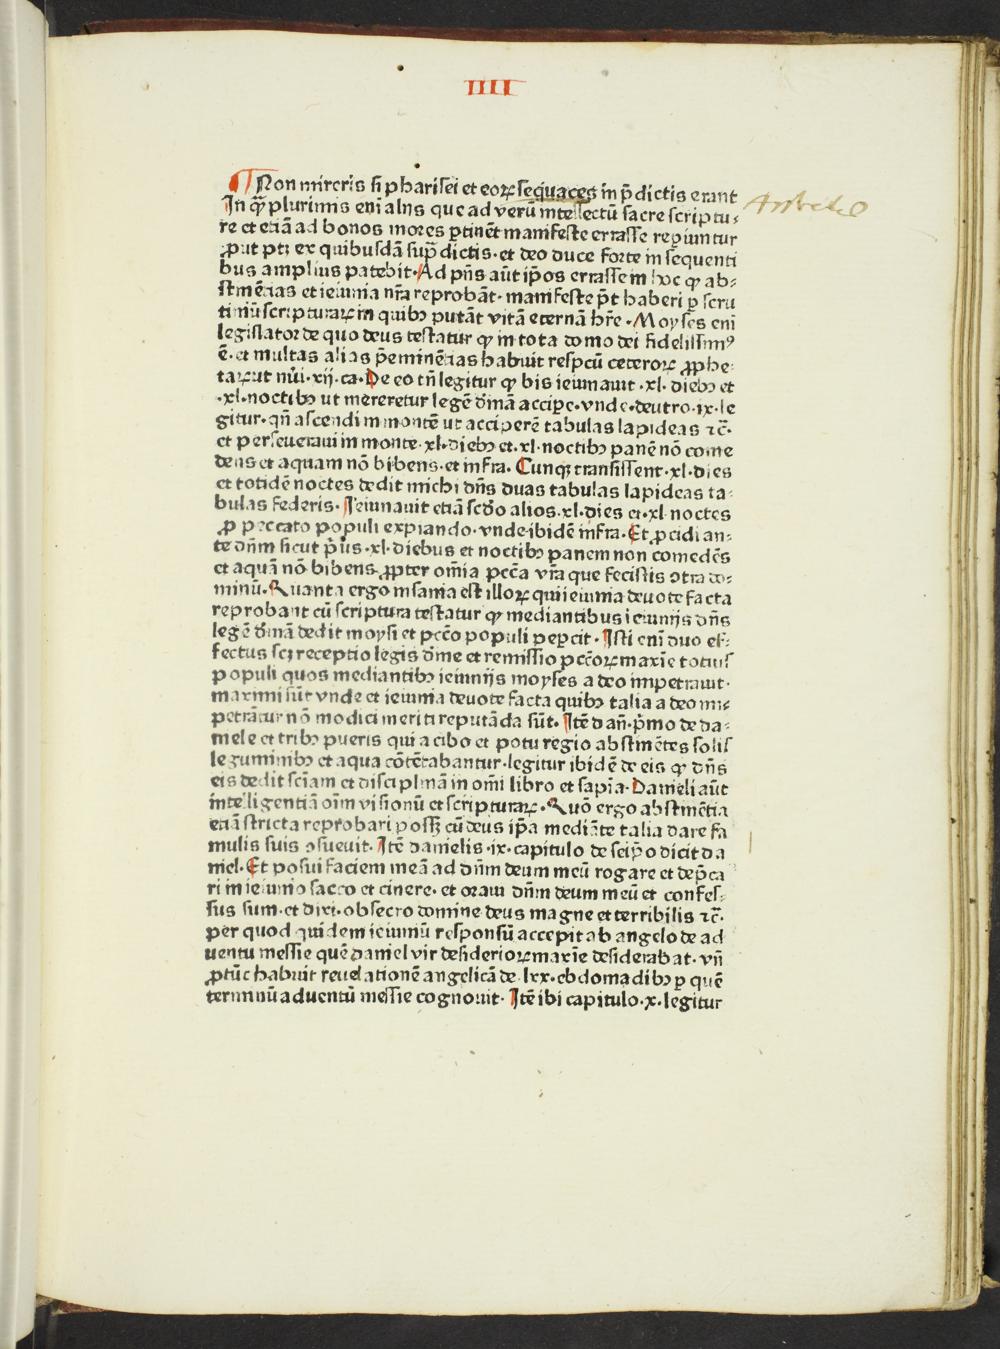 IIII
Non mireris si pharisei et eoꝝ sequaces in p̄dictis erant
In qꝫ plurimis eni alijs que ad verū intellectū sacre scriptu⸗
re et etiā ad bonos mores ꝑtinēt manifeste errasse reꝑiuntur
ꝓut ptꝫ ex quibusdā sup̄dictis· et deo duce forte in sequenti
bus amplius patebit· Ad pn̄s aūt ip̄os errasse in hoc ꝙ ab⸗
stinētias et ieiunia nr̄a reprobāt· manifeste p̄t haberi ꝑ scru
tiniū scripturaꝝ in quibꝫ putāt vitā eternā hr̄e · Moyses eni
legislator de quo deus testatur ꝙ in tota domo dei fidelissimꝰ
ē· et multas alias p̄eminētias habuit respcū ceteroꝝ ꝓphe⸗
taꝝ ut nūi· xij· ca· De eo tn̄ legitur ꝙ bis ieiunauit · xl· diebꝫ et
·xl· noctibꝫ ut mereretur legē diuinā accipe· vnde· deutro· ix· le
gitur· qn̄ ascendi in montē ut acciperē tabulas lapideas ⁊c̄·
et perseueraui in monte· xl· diebꝫ et· xl· noctibꝫ panē nō come
dens et aquam nō bibens· et infra· Cunqꝫ transissent· xl· dies
et totidē noctes dedit michi dn̄s duas tabulas lapideas ta⸗
bulas federis· Ieiunauit etiā scd̄o alios· xl· dies et· xl· noctes
ꝓ peccato populi expiando· vnde· ibidē infra· Et ꝓcidi an⸗
te dn̄m sicut p̄us· xl· diebus et noctibꝫ panem non comedēs
et aquā nō bibens· ꝓpter om̄ia pcc̄a vr̄a que fecistis ꝯtra do⸗
minū· Quanta ergo insania est illoꝝ qui ieiunia deuote facta
reprobant cū scriptura testatur ꝙ mediantibus ieiunijs dn̄s
legē diuinā dedit moysi et pcc̄o populi peꝑcit· Isti eni duo ef⸗
fectus scꝫ receptio legis diuine et remissio pcc̄oꝝ maxīe totius
populi quos mediantibꝫ ieiunijs moyses a deo impetrauit·
maximi sūt vnde et ieiunia deuote facta quibꝫ talia a deo im⸗
petrātur nō modici meriti reputāda sūt· Itē dan̄· p̄mo de da⸗
niele et tribꝫ pueris qui a cibo et potu regio abstinētes solis
leguminibꝫ et aqua cōtētabantur· legitur ibidē de eis ꝙ dn̄s
eis dedit sc̄iam et disciplinā in om̄i libro et sapīa· Danieli aūt
intelligentiā oīm visionū et scripturaꝝ · Quō ergo abstinētia
etiā stricta reprobari possꝫ cū deus ip̄a mediāte talia dare fa
mulis suis ꝯsueuit· Itē danielis· ix· capitulo de seip̄o dicit da
niel· Et posui faciem meā ad dn̄m deum meū rogare et dep̄ca
ri in ieiunio sacco et cinere· et oraui dn̄m deum meū et confes⸗
sus sum· et dixi· obsecro domine deus magne et terribilis ⁊c̄·
per quod quidem ieiuniū responsū accepit ab angelo de ad
uentu messie quē daniel vir desiderioꝝ maxīe desiderabat· vn̄
ꝓtūc habuit reuelationē angelicā de· lxx· ebdomadibꝫ ꝑ quē
terminū aduentū messie cognouit· Itē ibi capitulo· x· legitur